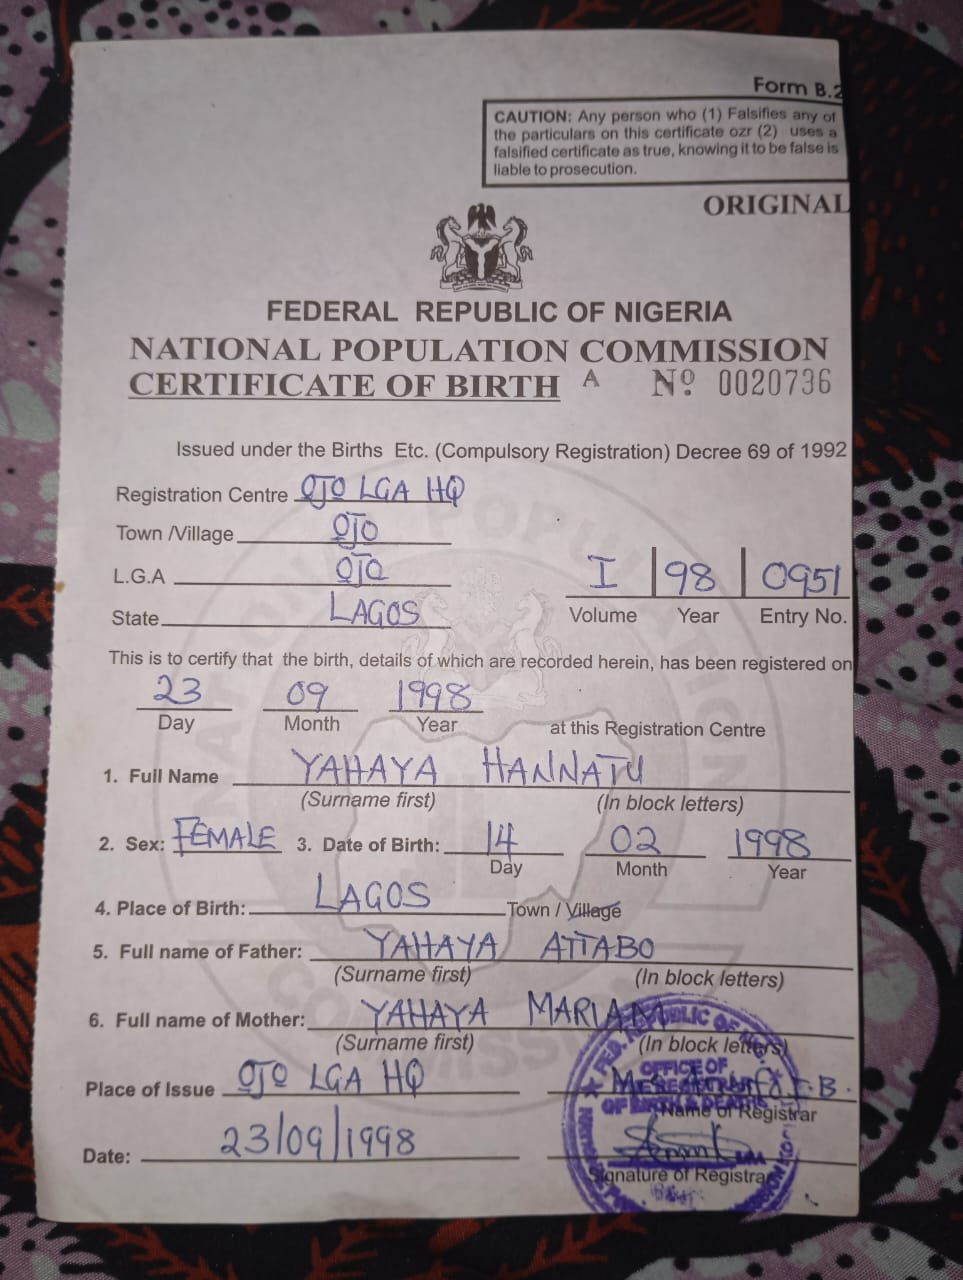 Form B.2
CAUTION: Any person who (1) Falsifies any of
the particulars on this certificate ozr (2) uses a
falsified certificate as true, knowing it to be false is
liable to prosecution.
ORIGINAL
FEDERAL REPUBLIC OF NIGERIA
NATIONAL POPULATION COMMISSION
CERTIFICATE OF BIRTH A Nº 0020736
Issued under the Births Etc. (Compulsory Registration) Decree 69 of 1992
Registration Centre ỌJỌ LGA HQ
Town /Village ỌJO
L.G.A OJO
State LAGOS
I | 98 | 0951
Volume Year Entry No.
This is to certify that the birth, details of which are recorded herein, has been registered on
23 09 1998
Day Month Year at this Registration Centre
1. Full Name YAHAYA HANNATU
(Surname first) (In block letters)
2. Sex: FEMALE 3. Date of Birth: 14 02 1998
Day Month Year
4. Place of Birth: LAGOS Town / Village
5. Full name of Father: YAHAYA ATTABO
(Surname first) (In block letters)
6. Full name of Mother: YAHAYA MARIAM
(Surname first) (In block letters)
Place of Issue OJO LGA HQ
F.B.
Name of Registrar
Date: 23/09/1998
Signature of Registrar
FED. REPUBLIC OF
OFFICE OF
REGISTRAR
OF BIRTH & DEATHS
NATIONAL POPULATION COMMISSION